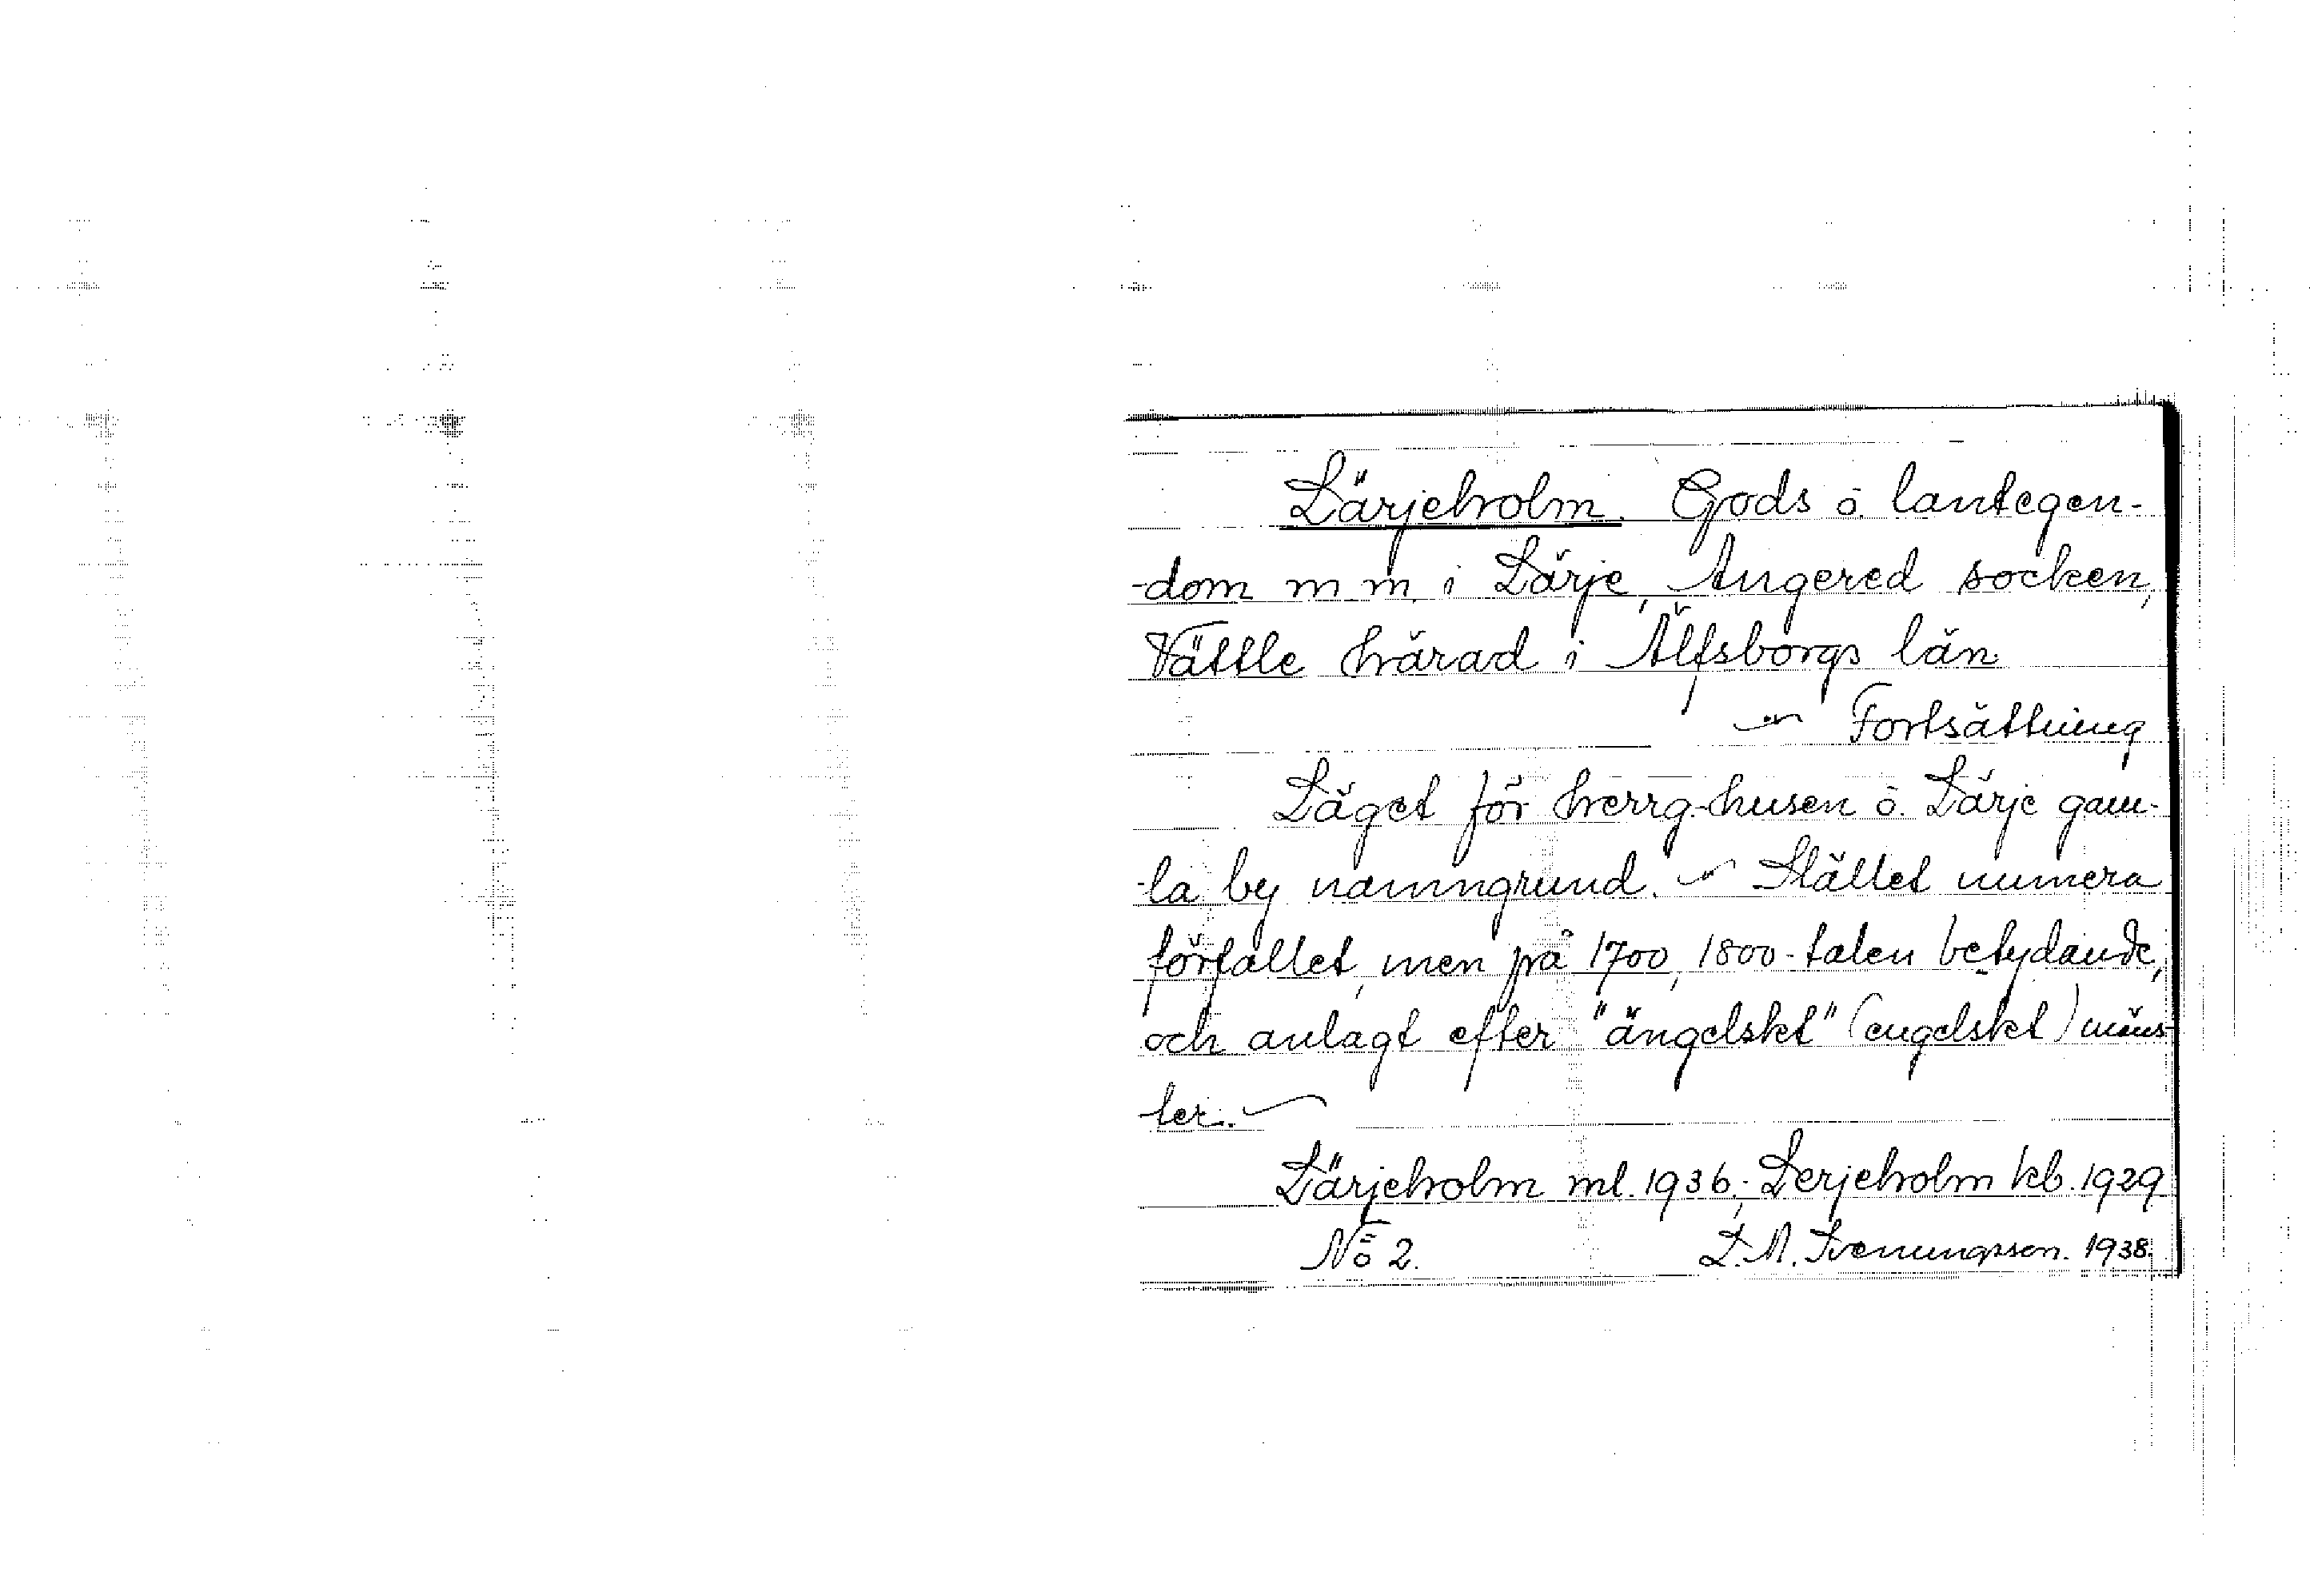 Lärjeholm. Gods o. lantegen-
-dom m m. i Lärje, Angered socken,
Vättle härad i Älfsborgs län
Fortsättning
Läget för herrg.-husen o. Lärje gam-
-la by namngrund. Stället numera
förfallet, men på 1700, 1800-talen betydande,
och anlagt efter "ängelskt" (engelskt) möns-
ter.
Lärjeholm ml. 1936; Lerjeholm kb. 1929
No 2. L. M. Svenungsson. 1938.